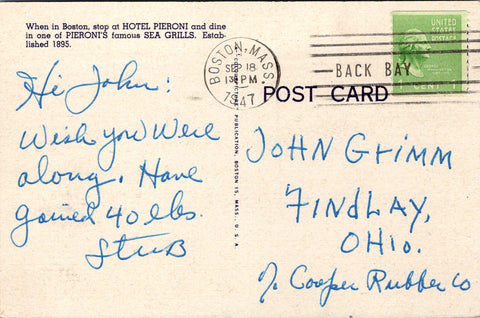 When in Boston, stop at HOTEL PIERONI and dine
in one of PIERONI'S famous SEA GRILLS. Estab-
lished 1895.
Hi John:
Wish you were
along. Have
gained 40 lbs.
Stub
BOSTON, MASS.
SEP 18
PM
1947
BACK BAY
UNITED
STATES
POSTAGE
CENT 1
POST CARD
PUBLICATION, BOSTON 15, MASS., U.S.A.
JOHN GRIMM
FINDLAY,
OHIO.
% Cooper Rubber Co